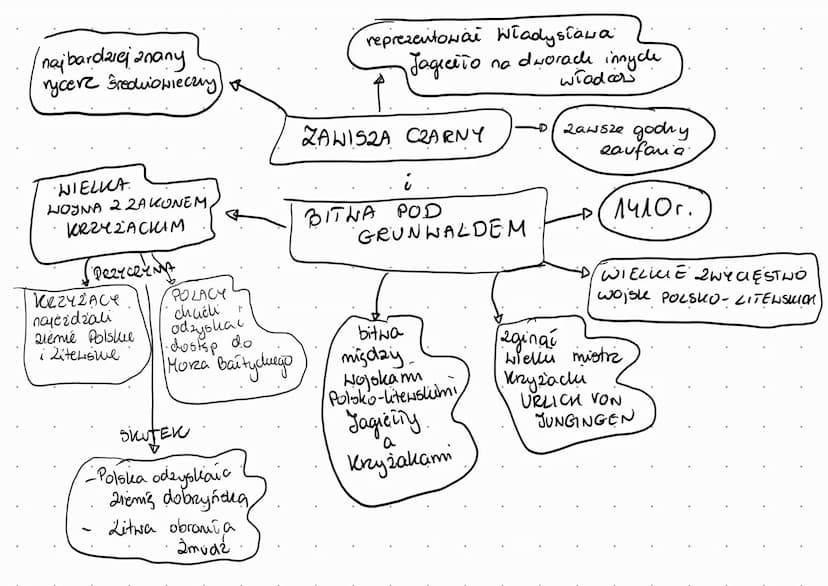 najbardziej znany
rycerz średniowieczny
reprezentował Władysława
Jagiełło na dworach innych
władców
ZAWISZA CZARNY
zawsze godny
zaufania
i
WIELKA
WOJNA Z ZAKONEM
KRZYŻACKIM
BITWA POD
GRUNWALDEM
1410r.
WIELKIE ZWYCIĘSTWO
WOJSK POLSKO-LITEWSKICH
PRZYCZYNA
KRZYŻACY
najeżdżali
ziemie Polskie
i Litewskie
POLACY
chcieli
odzyskać
dostęp do
Morza Bałtyckiego
bitwa
między
wojskami
Polsko-litewskimi
Jagiełły
a
Krzyżakami
zginął
wielki mistrz
Krzyżacki
URLICH VON
JUNGINGEN
SKUTEK
-Polska odzyskała
ziemię dobrzyńską
- Litwa obroniła
Żmudź